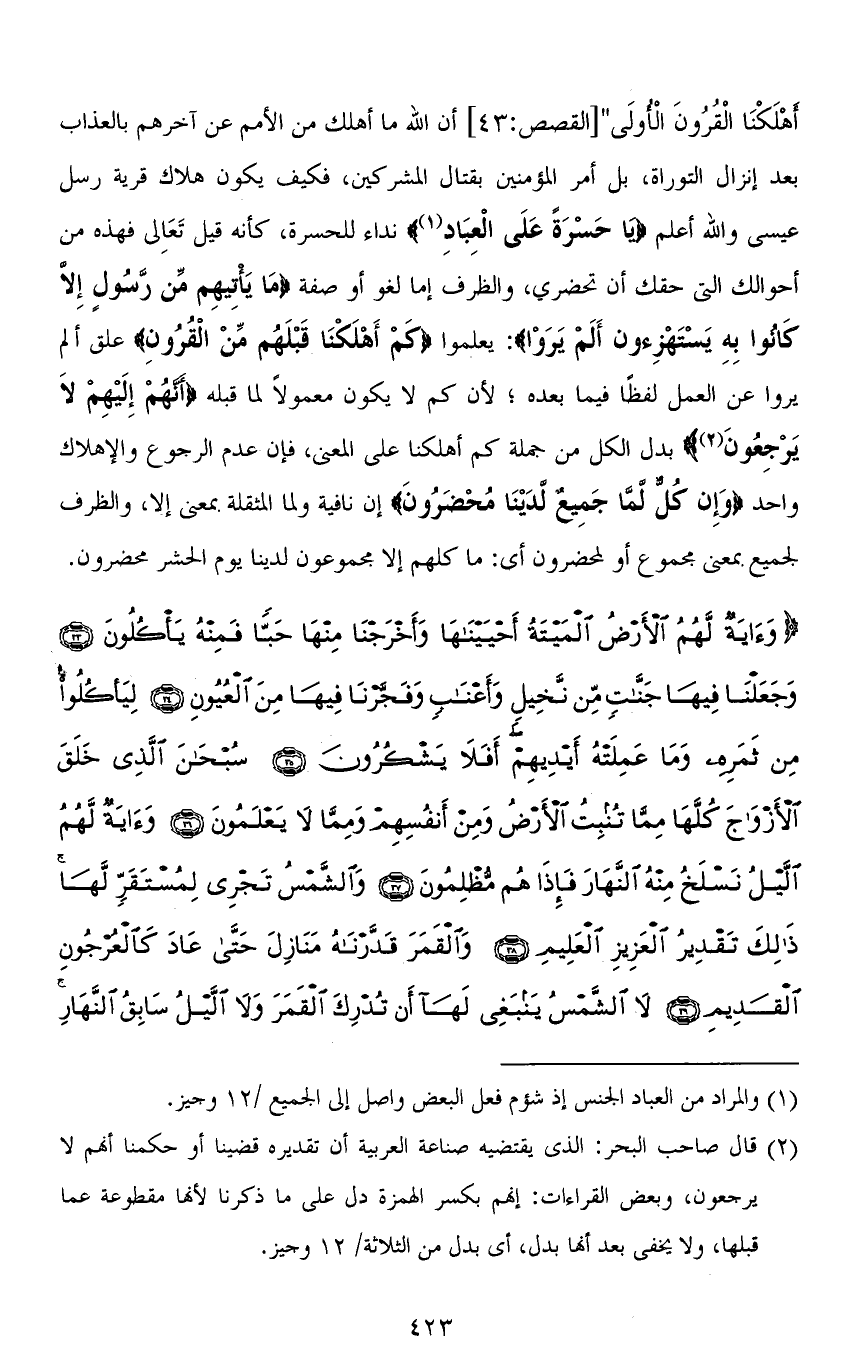 أَهْلَكْنَا الْقُرُونَ الْأُولَى"[القصص:٤٣] أن الله ما أهلك من الأمم عن آخرهم بالعذاب
بعد إنزال التوراة، بل أمر المؤمنين بقتال المشركين، فكيف يكون هلاك قرية رسل
عيسى والله أعلم ﴿يَا حَسْرَةً عَلَى الْعِبَادِ(١)﴾ نداء للحسرة، كأنه قيل تَعَالى فهذه من
أحوالك التى حقك أن تحضري، والظرف إما لغو أو صفة ﴿مَا يَأْتِيهِم مِّن رَّسُولٍ إِلاَّ
كَانُوا بِهِ يَسْتَهْزِءون أَلَمْ يَرَوْا﴾: يعلموا ﴿كَمْ أَهْلَكْنَا قَبْلَهُم مِّنْ الْقُرُونِ﴾ علق ألم
يروا عن العمل لفظًا فيما بعده ؛ لأن كم لا يكون معمولاً لما قبله ﴿أَنَّهُمْ إِلَيْهِمْ لاَ
يَرْجِعُونَ(٢)﴾ بدل الكل من جملة كم أهلكنا على المعنى، فإن عدم الرجوع والإهلاك
واحد ﴿وَإِن كُلٌّ لَّمَّا جَمِيعٌ لَّدَيْنَا مُحْضَرُونَ﴾ إن نافية ولما المثقلة بمعنى إلا، والظرف
لجميع بمعنى مجموع أو لمحضرون أى: ما كلهم إلا مجموعون لدينا يوم الحشر محضرون.
﴿ وَءَايَةٌ لَّهُمُ ٱلْأَرْضُ ٱلْمَيْتَةُ أَحْيَيْنَـٰهَا وَأَخْرَجْنَا مِنْهَا حَبًّا فَمِنْهُ يَأْكُلُونَ ٣٣
وَجَعَلْنَا فِيهَا جَنَّـٰتٍ مِّن نَّخِيلٍ وَأَعْنَـٰبٍ وَفَجَّرْنَا فِيهَا مِنَ ٱلْعُيُونِ ٣٤ لِيَأْكُلُوا۟
مِن ثَمَرِهِۦ وَمَا عَمِلَتْهُ أَيْدِيهِمْ ۖ أَفَلَا يَشْكُرُونَ ٣٥ سُبْحَـٰنَ ٱلَّذِى خَلَقَ
ٱلْأَزْوَٰجَ كُلَّهَا مِمَّا تُنۢبِتُ ٱلْأَرْضُ وَمِنْ أَنفُسِهِمْ وَمِمَّا لَا يَعْلَمُونَ ٣٦ وَءَايَةٌ لَّهُمُ
ٱلَّيْلُ نَسْلَخُ مِنْهُ ٱلنَّهَارَ فَإِذَا هُم مُّظْلِمُونَ ٣٧ وَٱلشَّمْسُ تَجْرِى لِمُسْتَقَرٍّ لَّهَا ۚ
ذَٰلِكَ تَقْدِيرُ ٱلْعَزِيزِ ٱلْعَلِيمِ ٣٨ وَٱلْقَمَرَ قَدَّرْنَـٰهُ مَنَازِلَ حَتَّىٰ عَادَ كَٱلْعُرْجُونِ
ٱلْقَدِيمِ ٣٩ لَا ٱلشَّمْسُ يَنۢبَغِى لَهَآ أَن تُدْرِكَ ٱلْقَمَرَ وَلَا ٱلَّيْلُ سَابِقُ ٱلنَّهَارِ ۚ
(١) والمراد من العباد الجنس إذ شؤم فعل البعض واصل إلى الجميع /١٢ وجيز.
(٢) قال صاحب البحر: الذى يقتضيه صناعة العربية أن تقديره قضينا أو حكمنا أنهم لا
يرجعون، وبعض القراءات: إنهم بكسر الهمزة دل على ما ذكرنا لأنها مقطوعة عما
قبلها، ولا يخفى بعد أنها بدل، أى بدل من الثلاثة/ ١٢ وجيز.
٤٢٣